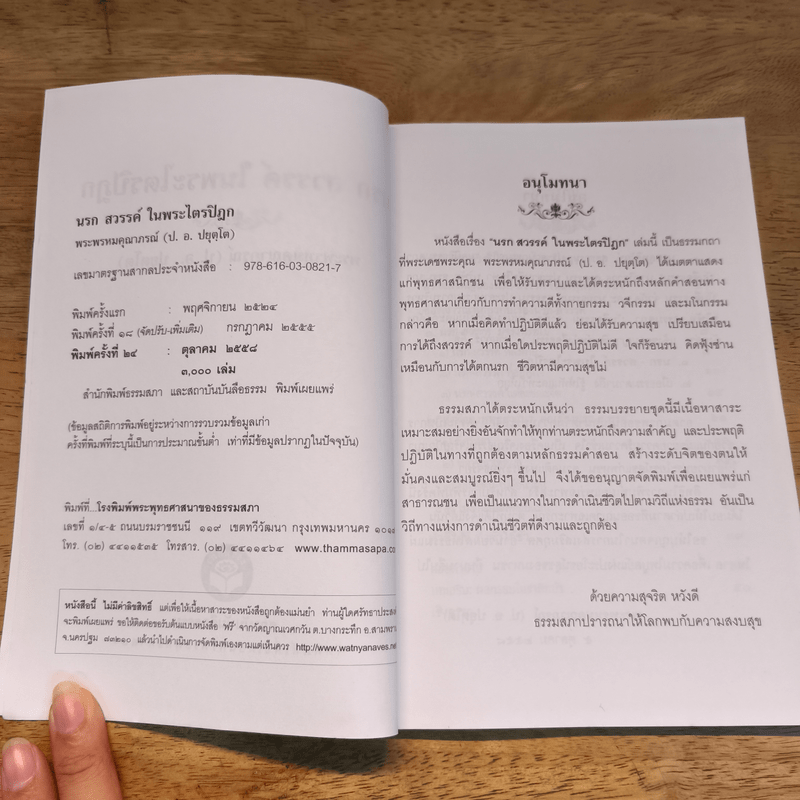 นรก สวรรค์ ในพระไตรปิฎก
พระพรหมคุณาภรณ์ (ป. อ. ปยุตฺโต)
เลขมาตรฐานสากลประจำหนังสือ : 978-616-03-0821-7
พิมพ์ครั้งแรก : พฤศจิกายน ๒๕๒๔
พิมพ์ครั้งที่ ๑๘ (จัดปรับ-เพิ่มเติม) กรกฎาคม ๒๕๕๕
พิมพ์ครั้งที่ ๒๔ : ตุลาคม ๒๕๕๘
๓,๐๐๐ เล่ม
สำนักพิมพ์ธรรมสภา และสถาบันบันลือธรรม พิมพ์เผยแพร่
(ข้อมูลสถิติการพิมพ์อยู่ระหว่างการรวบรวมข้อมูลเก่า
ครั้งที่พิมพ์ที่ระบุนี้เป็นการประมาณขั้นต่ำ เท่าที่มีข้อมูลปรากฏในปัจจุบัน)
พิมพ์ที่...โรงพิมพ์พระพุทธศาสนาของธรรมสภา
เลขที่ ๑/๔-๕ ถนนบรมราชชนนี ๑๑๙ เขตทวีวัฒนา กรุงเทพมหานคร ๑๐๑๗
โทร. (๐๒) ๔๔๑๑๕๓๕ โทรสาร. (๐๒) ๔๔๑๑๔๖๔ www.thammasapa.co
หนังสือนี้ ไม่มีค่าลิขสิทธิ์ แต่เพื่อให้เนื้อหาสาระของหนังสือถูกต้องแม่นยำ ท่านผู้ใดศรัทธาประสงค์
จะพิมพ์เผยแพร่ ขอให้ติดต่อขอรับต้นแบบหนังสือ 'ฟรี' จากวัดญาณเวศกวัน ต.บางกระทึก อ.สามพราน
จ.นครปฐม ๗๓๒๑๐ แล้วนำไปดำเนินการจัดพิมพ์เองตามแต่เห็นควร http://www.watnyanaves.net
อนุโมทนา
หนังสือเรื่อง "นรก สวรรค์ ในพระไตรปิฎก" เล่มนี้ เป็นธรรมกถา
ที่พระเดชพระคุณ พระพรหมคุณาภรณ์ (ป. อ. ปยุตฺโต) ได้เมตตาแสดง
แก่พุทธศาสนิกชน เพื่อให้รับทราบและได้ตระหนักถึงหลักคำสอนทาง
พุทธศาสนาเกี่ยวกับการทำความดีทั้งกายกรรม วจีกรรม และมโนกรรม
กล่าวคือ หากเมื่อคิดทำปฏิบัติดีแล้ว ย่อมได้รับความสุข เปรียบเสมือน
การได้ถึงสวรรค์ หากเมื่อใดประพฤติปฏิบัติไม่ดี ใจก็ร้อนรน คิดฟุ้งซ่าน
เหมือนกับการได้ตกนรก ชีวิตหามีความสุขไม่
ธรรมสภาได้ตระหนักเห็นว่า ธรรมบรรยายชุดนี้มีเนื้อหาสาระ
เหมาะสมอย่างยิ่งอันจักทำให้ทุกท่านตระหนักถึงความสำคัญ และประพฤติ
ปฏิบัติในทางที่ถูกต้องตามหลักธรรมคำสอน สร้างระดับจิตของตนให้
มั่นคงและสมบูรณ์ยิ่งๆ ขึ้นไป จึงได้ขออนุญาตจัดพิมพ์เพื่อเผยแพร่แก่
สาธารณชน เพื่อเป็นแนวทางในการดำเนินชีวิตไปตามวิถีแห่งธรรม อันเป็น
วิถีทางแห่งการดำเนินชีวิตที่ดีงามและถูกต้อง
ด้วยความสุจริต หวังดี
ธรรมสภาปรารถนาให้โลกพบกับความสงบสุข